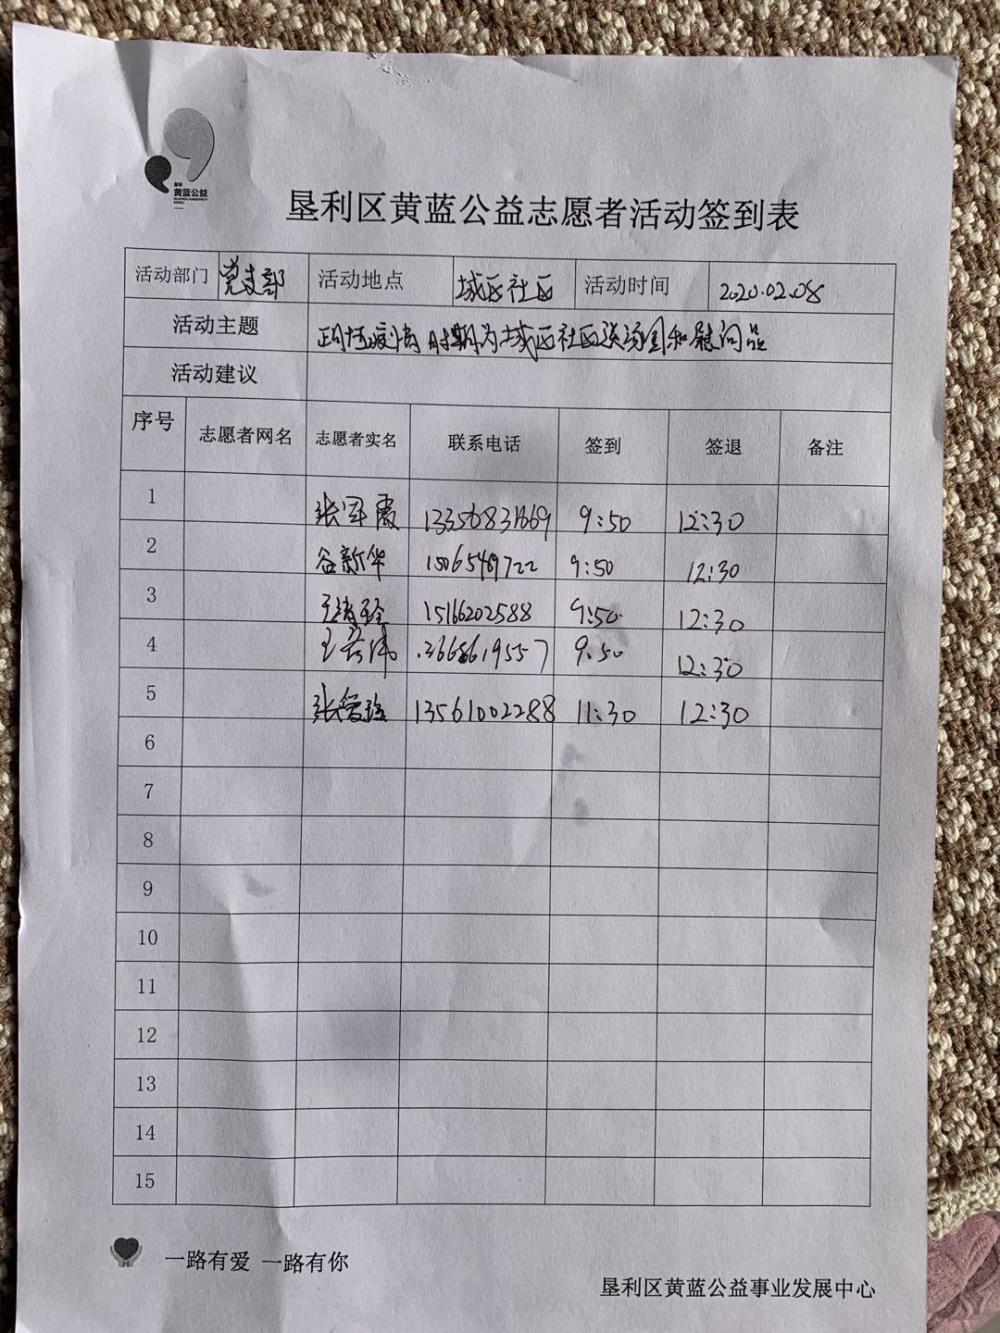 垦利
黄蓝公益
垦利区黄蓝公益志愿者活动签到表
活动部门 党支部 活动地点 城区社区 活动时间 2020.02.08
活动主题 疫情时期为城区社区送汤圆和慰问品
活动建议
序号 志愿者网名 志愿者实名 联系电话 签到 签退 备注
1 张军霞 13356831669 9:50 12:30
2 谷新华 15065489722 9:50 12:30
3 15166202588 9:50 12:30
4 王 9:50 12:30
5 张爱玲 13561002288 11:30 12:30
6
7
8
9
10
11
12
13
14
15
一路有爱 一路有你
垦利区黄蓝公益事业发展中心